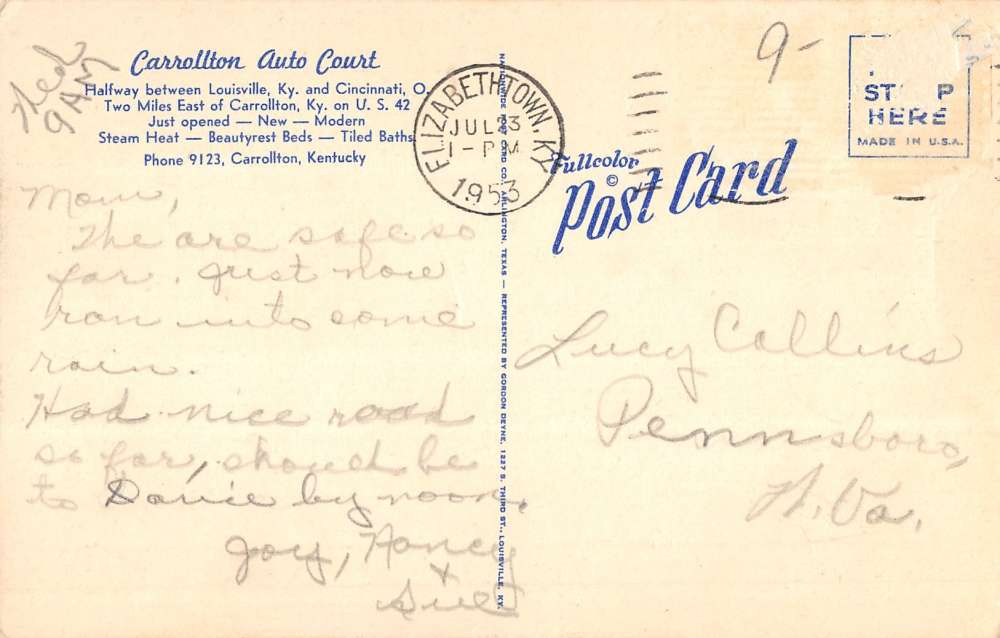 Wed
9 AM
Carrollton Auto Court
Halfway between Louisville, Ky. and Cincinnati, O.
Two Miles East of Carrollton, Ky. on U. S. 42
Just opened — New — Modern
Steam Heat — Beautyrest Beds — Tiled Baths
Phone 9123, Carrollton, Kentucky
Mom,
The are safe so
far. Just now
ran into some
rain.
Had nice road
so far, should be
to Davie by noon.
Joy, Nancy
+
Sue
NATIONWIDE POST CARD CO., ARLINGTON, TEXAS — REPRESENTED BY GORDON DEYNE, 1227 S. THIRD ST., LOUISVILLE, KY.
ELIZABETHTOWN, KY
JUL 23
1 - PM
1953
Fullcolor
©
Post Card
9-
ST P
HERE
MADE IN U.S.A.
Lucy Collins
Pennsboro,
W. Va.